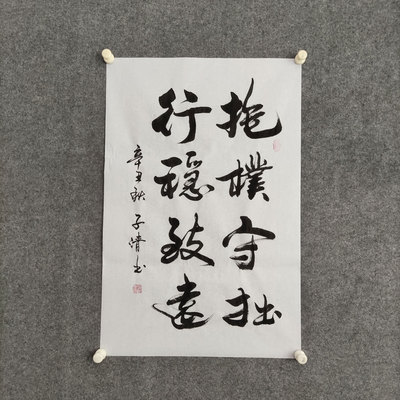 抱樸守拙
行穩致遠
辛丑秋子情书